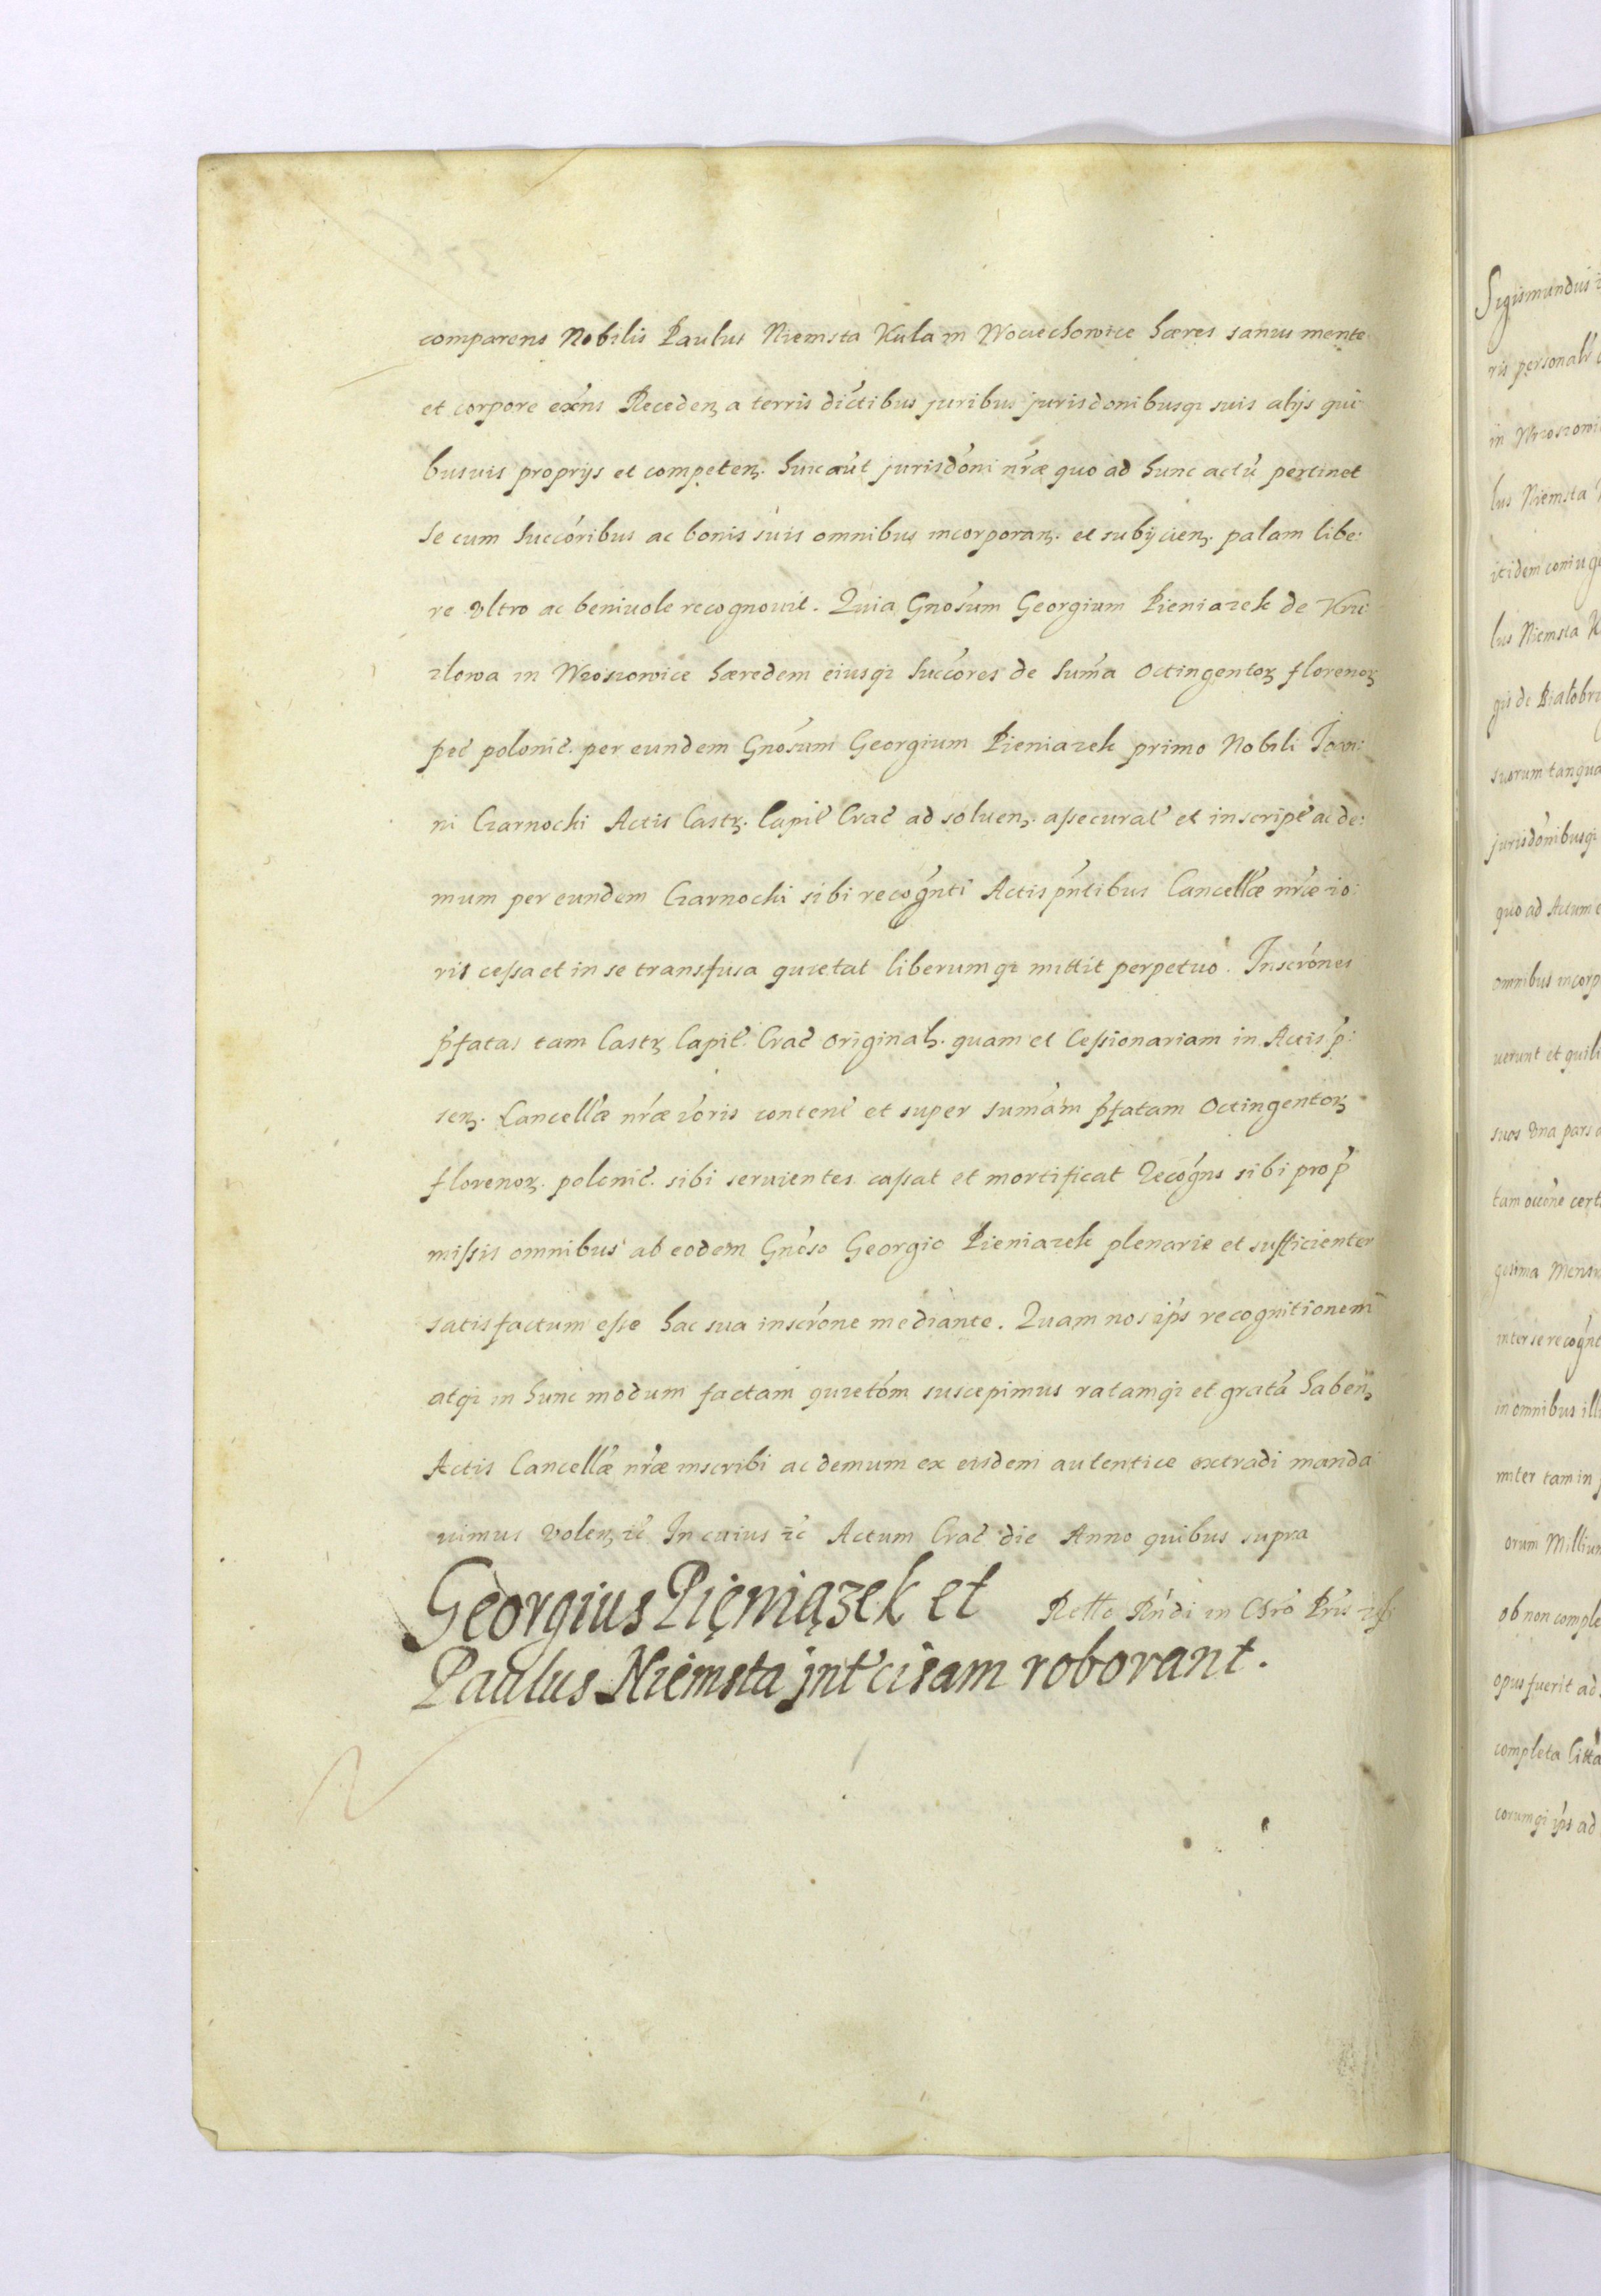 comparens Nobilis Paulus Niemsta Kula in Wociechowice hæres sanus mente
et corpore exn̄s Recedenꝫ a terris dictibus juribus jurisdonibusqꝫ suis alijs qui
busuis proprijs et competenꝫ. huic aut̄ jurisdoni nr̄æ quo ad hunc actū pertinet
Se cum Succoribus ac bonis suis omnibus incorporanꝫ. et subijcienꝫ. palam libe:
re vltro ac beniuole recognouit. Quia Gnosum Georgium Pieniazek de Kru
zlowa in Wroszowice hæredem eiusqꝫ Succores de Sum̄a Octingentoꝝ florenoꝝ
pec̄ polonic̄. per eundem Gnosum Georgium Pieniazek primo Nobili Joan:
ni Czarnocki Actis Castꝝ. Capit̄ Crac̄ ad soluenꝫ. assecurat̄ et inscript̄ ac de:
mum per eundem Czarnocki sibi recogn̄ti Actis pn̄tibus Cancell̄æ nr̄æ io:
ris cessa et in se transfusa quietat liberumqꝫ mittit perpetuo. Inscrones
p̄fatas tam Castꝝ Capit̄. Crac̄ originalꝫ. quam et Cessionariam in Actis p̄:
senꝫ. Cancell̄æ nr̄æ ioris content̄ et super sum̄am p̄fatam Octingentoꝝ
florenoꝝ. polonic̄. sibi seruientes cassat et mortificat Recogn̄s sibi pro p̄
missis omnibus ab eodem Gnoso Georgio Pieniazek plenarie et sufficienter
satisfactum esse hac sua inscrone mediante. Quam nos ip̄s recognitionem
atqꝫ in hunc modum factam quietom suscepimus ratamqꝫ et gratā habenꝫ
Actis Cancell̄æ nr̄æ inscribi ac demum ex eisdem autentice extradi manda
uimus volenꝫ ꝛc̄ In cuius ꝛc̄ Actum Crac̄ die Anno quibus supra
Georgius Pięniązek et Rel̄t̄o Rn̄di in Chr̄o Pr̄is
Paulus Niemsta jnt'cisam roborant.
Sigismundus
ris personalr̄
in Wroszowi
lus Niemsta
itidem coniuge
lus Niemsta K
gis de Białobrz
suorum tanqua
jurisdonibusqꝫ
quo ad Actum
omnibus incorp
uerunt et quili
suos vna pars
tam occōne cert
gesima Mensis
inter se recognt
in omnibus ill
miter tam in
orum Milliu
ob non comple
opus fuerit ad
completa litta
eorumqꝫ ip̄s ad